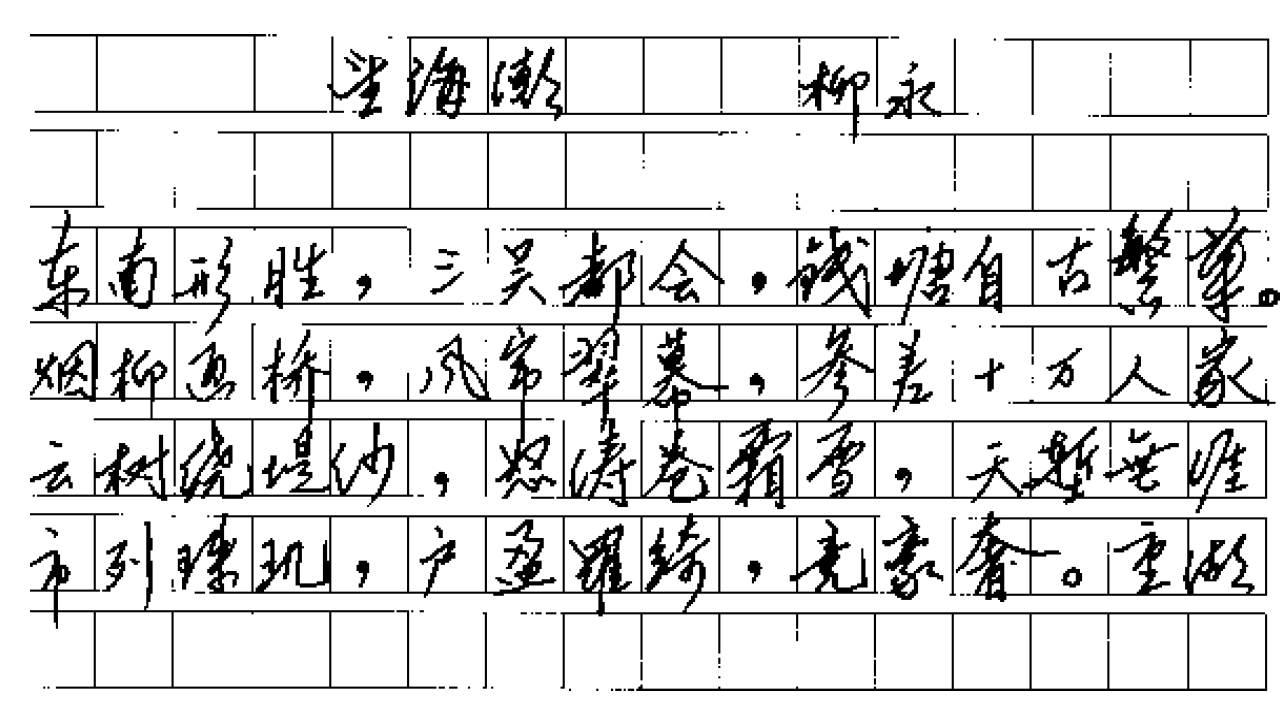 望海潮 柳永
东南形胜，三吴都会，钱塘自古繁华。
烟柳画桥，风帘翠幕，参差十万人家
云树绕堤沙，怒涛卷霜雪，天堑無涯
市列珠玑，户盈罗绮，竞豪奢。重湖